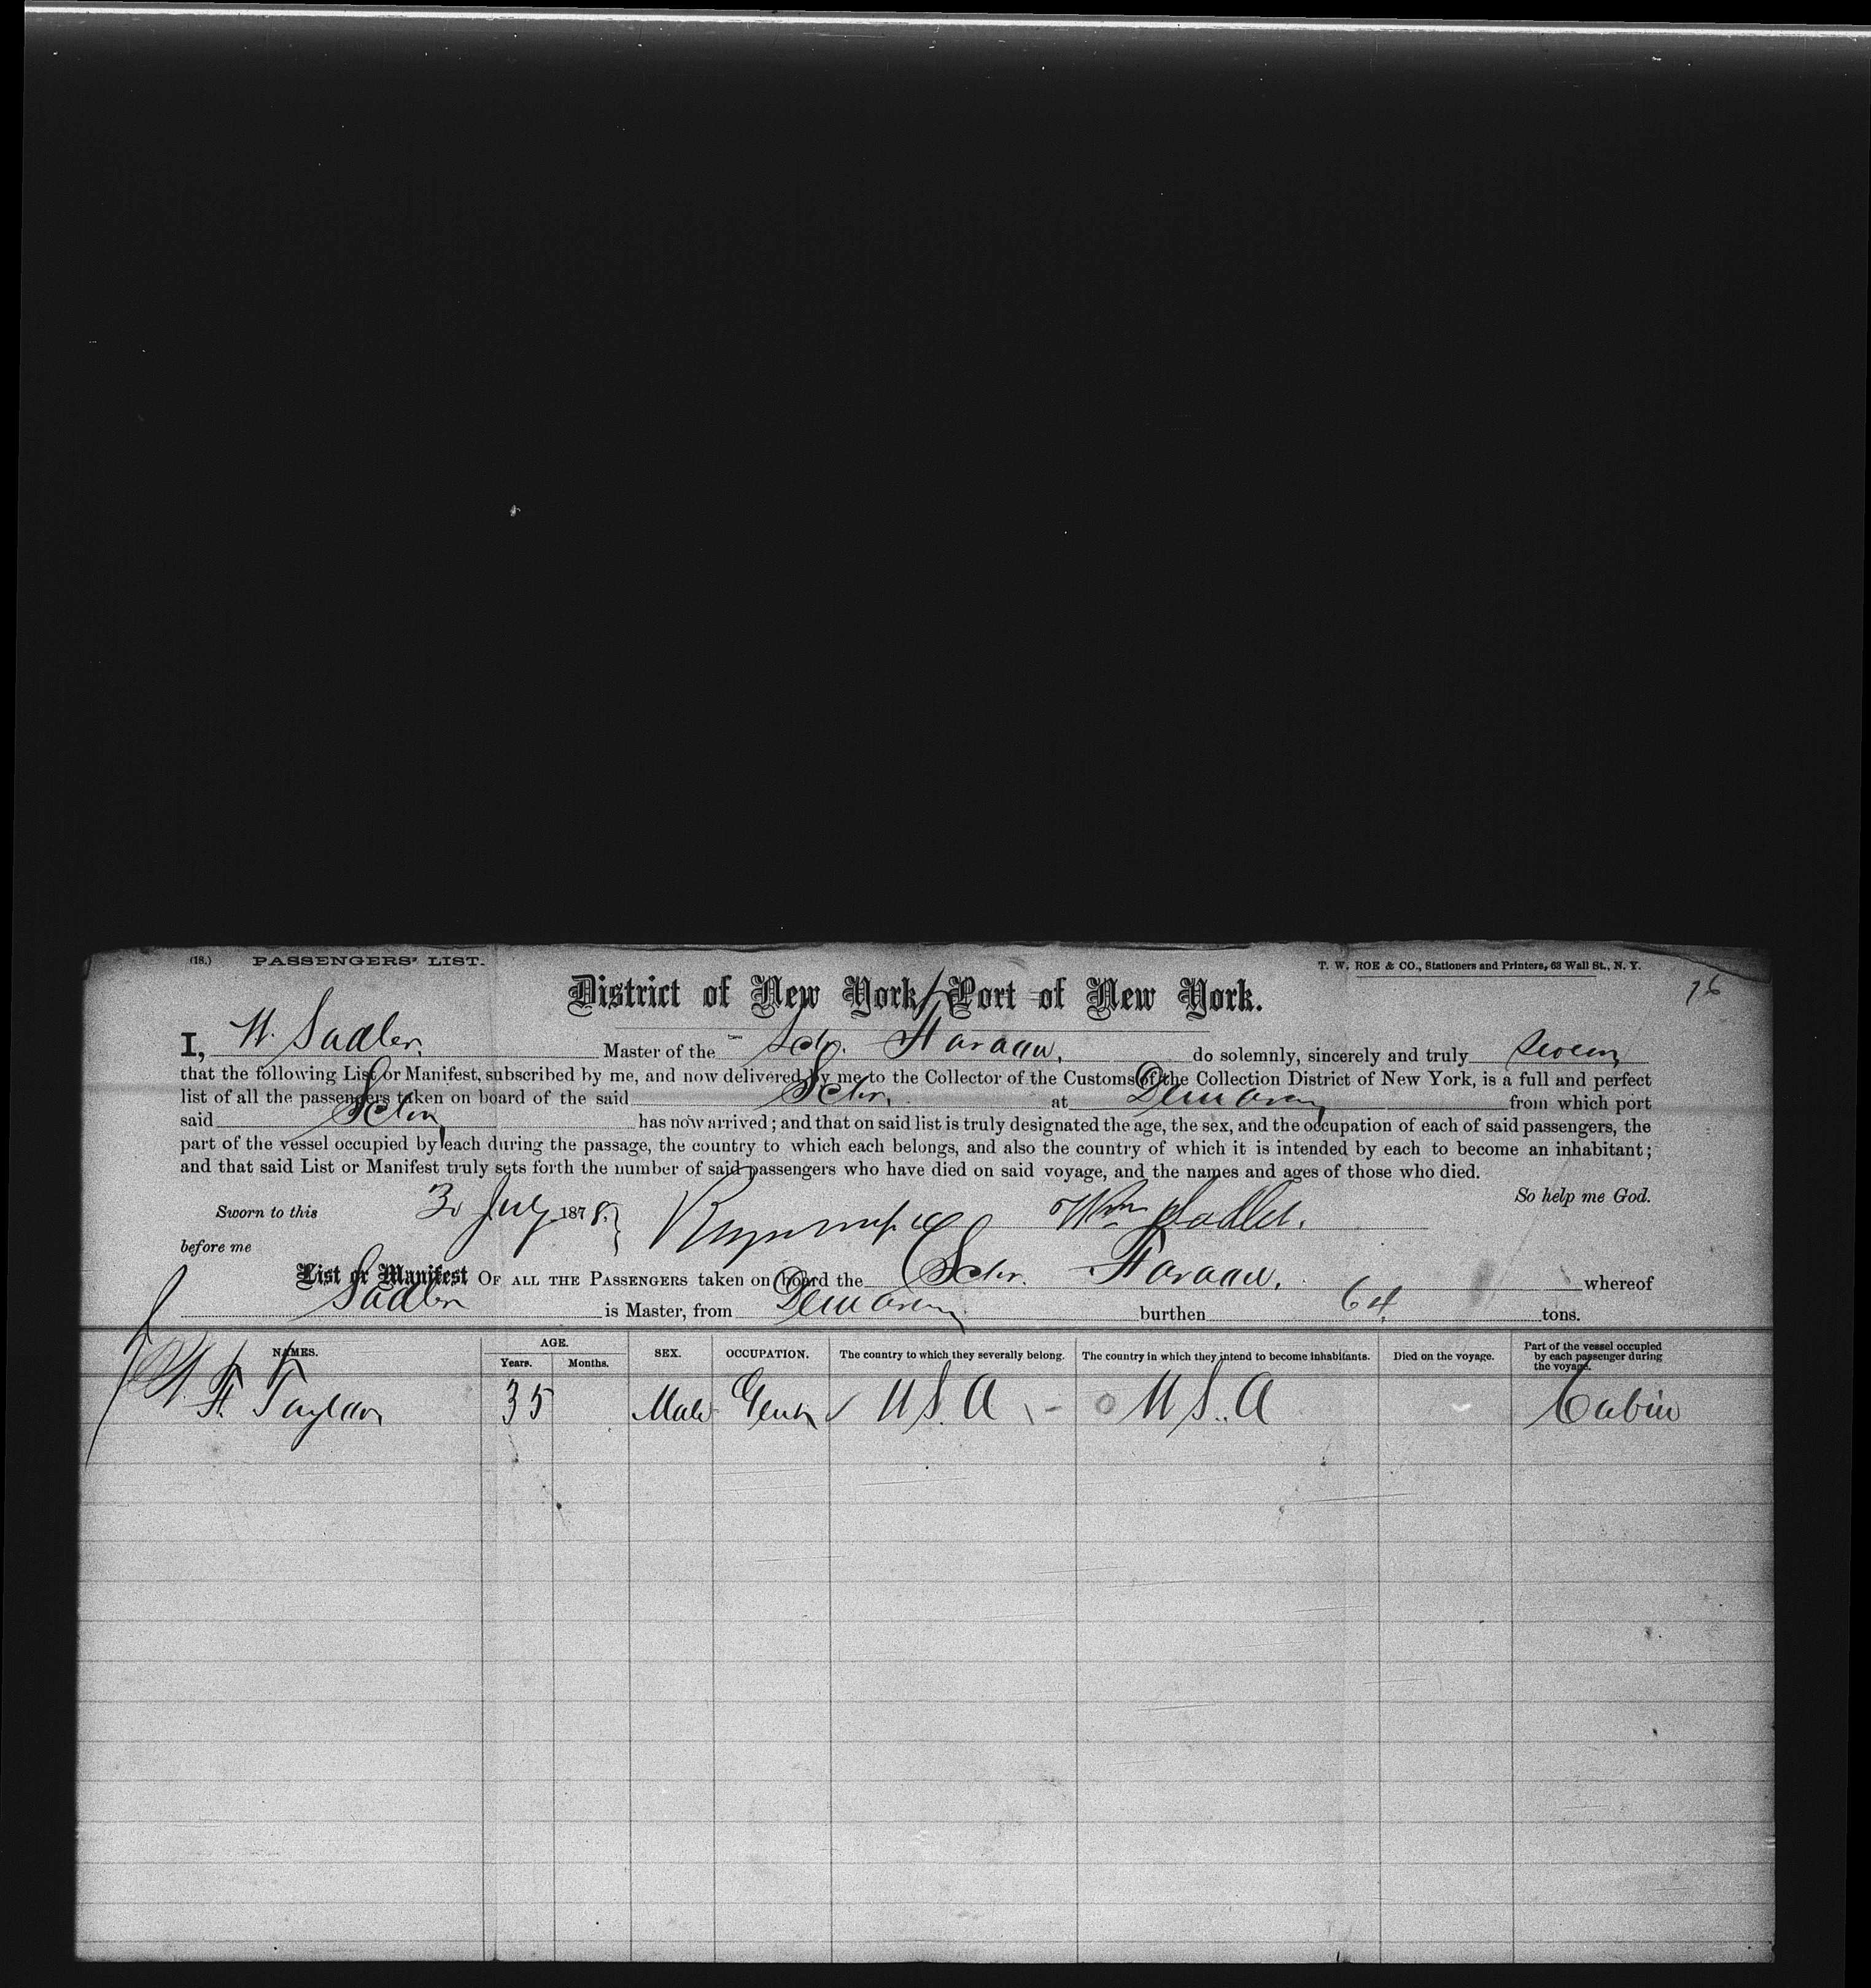 (18.) PASSENGERS' LIST.
T. W. ROE & CO., Stationers and Printers, 63 Wall St., N. Y.
76
District of New York, Port of New York.
I, W. Sadler, Master of the Schr. do solemnly, sincerely and truly swear
that the following List or Manifest, subscribed by me, and now delivered by me to the Collector of the Customs of the Collection District of New York, is a full and perfect
list of all the passengers taken on board of the said Schr. at Demarary from which port
said Schr has now arrived; and that on said list is truly designated the age, the sex, and the occupation of each of said passengers, the
part of the vessel occupied by each during the passage, the country to which each belongs, and also the country of which it is intended by each to become an inhabitant;
and that said List or Manifest truly sets forth the number of said passengers who have died on said voyage, and the names and ages of those who died.
So help me God.
Sworn to this 3 July 1878. Wm Sadler.
before me
List or Manifest OF ALL THE PASSENGERS taken on board the Schr. whereof
Sadler is Master, from Demarary burthen 64 tons.
NAMES. AGE. Years. Months. SEX. OCCUPATION. The country to which they severally belong. The country in which they intend to become inhabitants. Died on the voyage. Part of the vessel occupied by each passenger during the voyage.
Taylor 35 Male Gent U S. A U S. A Cabin